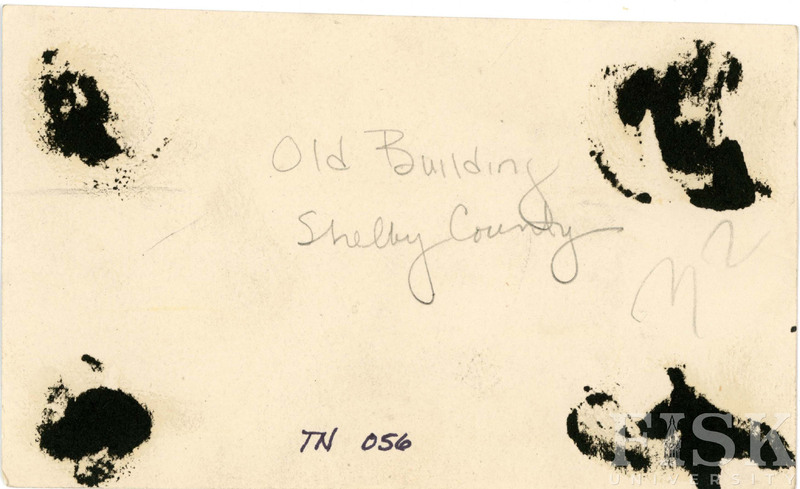 Old Building
Shelby County
TN 056
FISK
UNIVERSITY